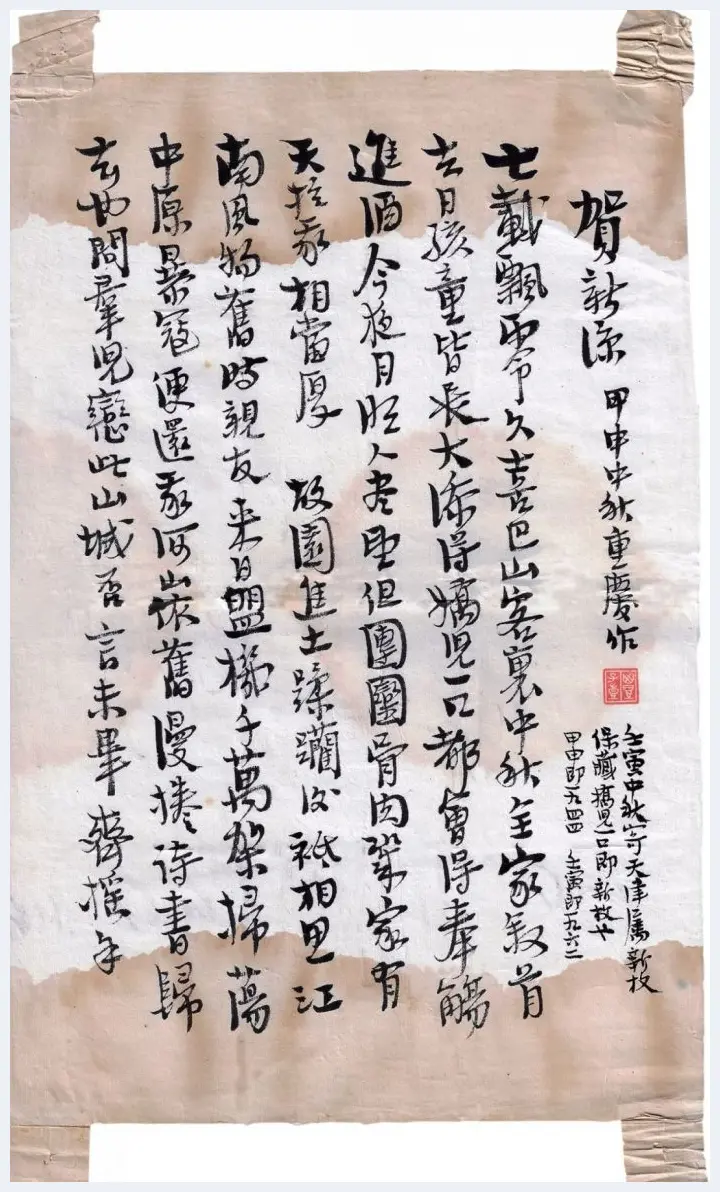 賀新涼 甲申中秋重慶作
壬寅中秋寄天津屬新枚
保藏嬌兒一口即新枚也
甲申即一九四四 壬寅即一九六二
七載飄零久喜巴山客裏中秋全家敘首
去日孩童皆長大添得嬌兒一口都會得奉觴
進酒今夜月明人盡望但團圞骨肉幾家有
天於我相當厚 故園焦土蹂躪後祇相思江
南風物舊時親友來日盟機千萬架掃蕩
中原暴寇便還我河山依舊漫捲詩書歸
去也問羣兒戀此山城否言未畢齊搖手